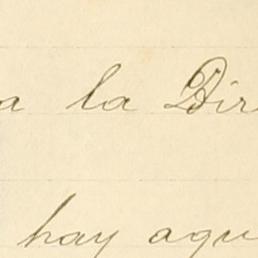 a la Dir
hay aqu